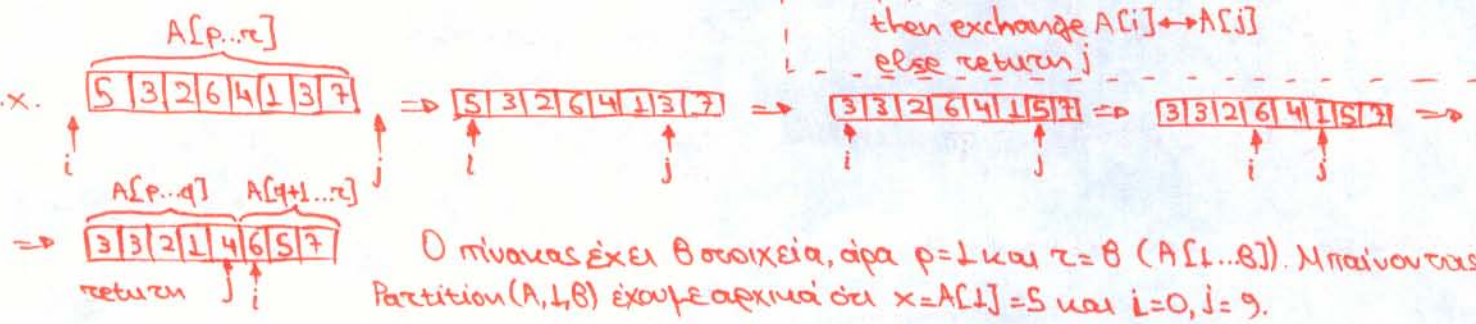 then exchange A[i]↔A[j]
else return j
A[p...r]
.x. 5 3 2 6 4 1 3 7 ⇒ 5 3 2 6 4 1 3 7 ⇒ 3 3 2 6 4 1 5 7 ⇒ 3 3 2 6 4 1 5 7 ⇒
i j i j i j i j
A[p...q] A[q+1...r]
⇒ 3 3 2 1 4 6 5 7
return j i
Ο πίνακας έχει 8 στοιχεία, άρα p=1 και r=8 (A[1...8]). Μπαίνοντας
Partition(A,1,8) έχουμε αρχικά ότι x=A[1]=5 και i=0, j=9.